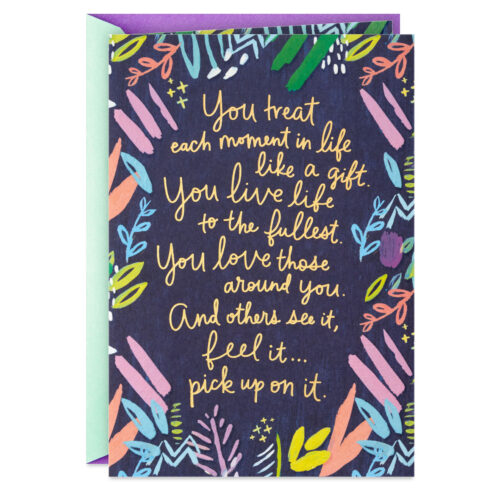 You treat
each moment in life
like a gift.
You live life
to the fullest.
You love those
around you.
And others see it,
feel it...
pick up on it.